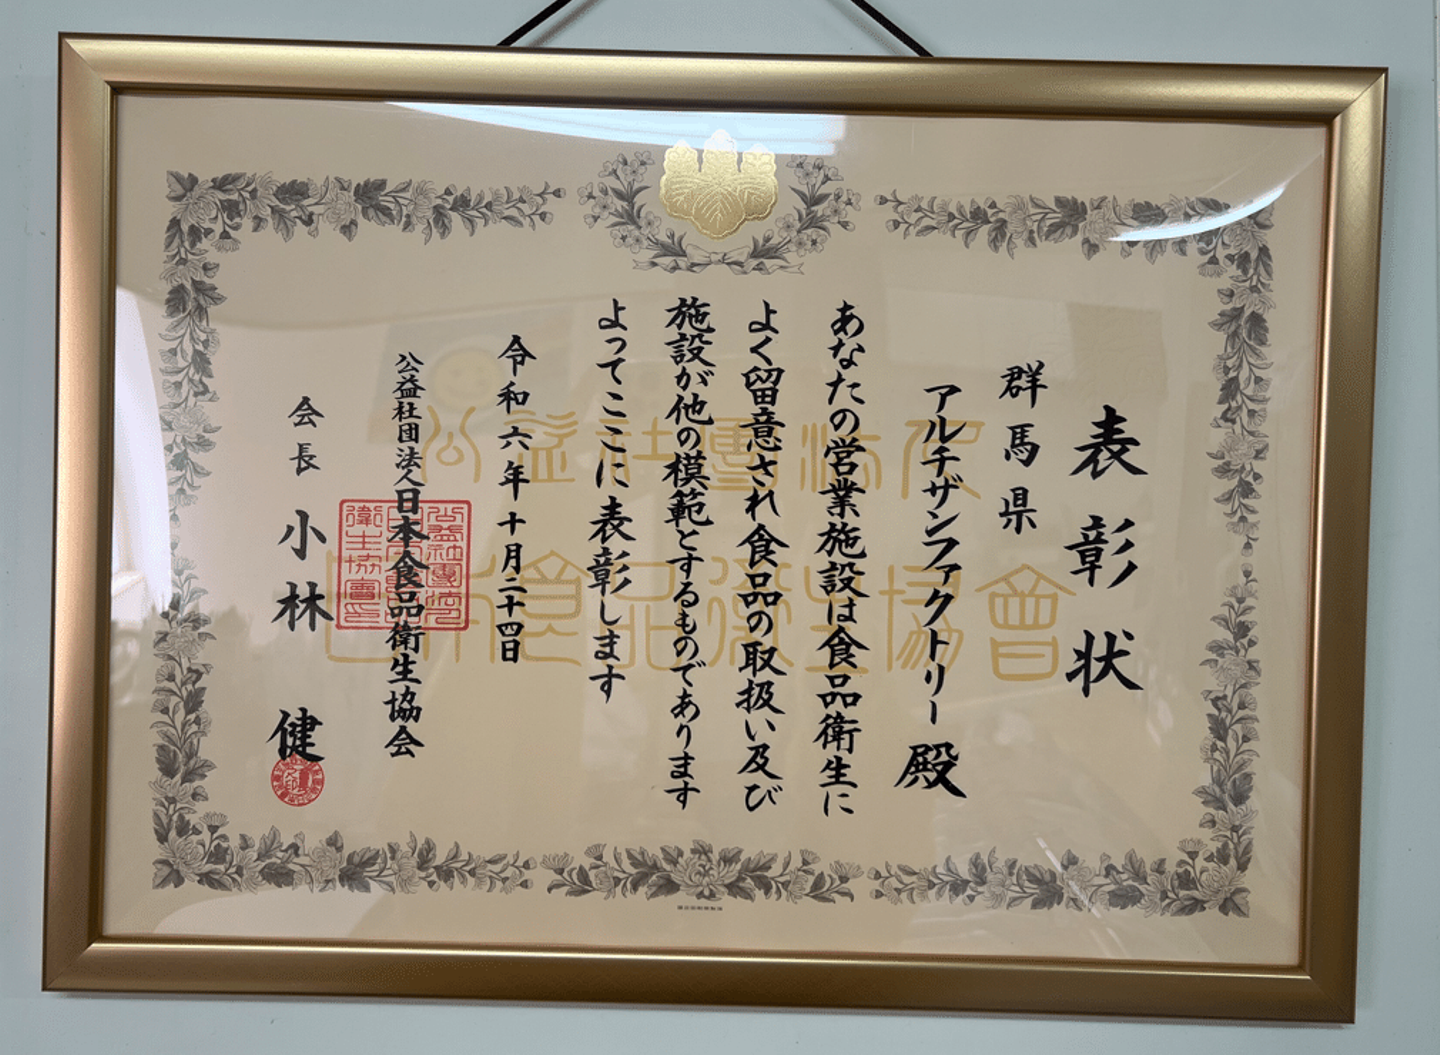 表彰状
群馬県
アルチザンファクトリー 殿
あなたの営業施設は食品衛生に
よく留意され食品の取扱い及び
施設が他の模範とするものであります
よってここに表彰します
令和六年十月二十四日
公益社団法人日本食品衛生協会
会長 小林 健
公益社團法人
日本食品衛生協會